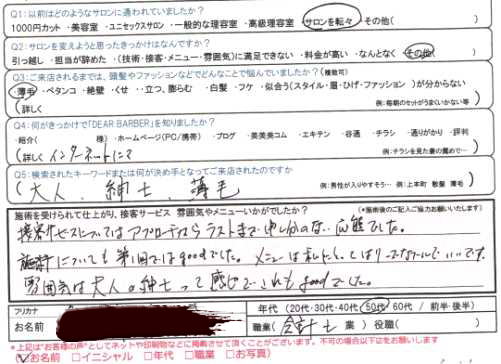 Q1：以前はどのようなサロンに通われていましたか？
1000円カット ・美容室 ・ユニセックスサロン ・一般的な理容室 ・高級理容室 ・サロンを転々 ・その他(　　)
Q2：サロンを変えようと思ったきっかけはなんですか？
引っ越し ・担当が辞めた ・(技術・接客・メニュー・雰囲気)に満足できない ・料金が高い ・なんとなく ・その他(
Q3：ご来店されるまでは、頭髪やファッションなどでどんなことで悩んでいましたか？(複数可)
薄毛 ・ペタンコ ・絶壁 ・くせ ・立つ、膨らむ ・白髪 ・フケ ・似合う(スタイル・眉・ひげ・ファッション)が分からない
(詳しく　　例：毎朝のセットがうまくいかない等 )
Q4：何がきっかけで「DEAR BARBER」を知りましたか？
・紹介(　　様) ・ホームページ(PC/携帯) ・ブログ ・美美美コム ・エキテン ・谷通 ・チラシ ・通りがかり ・評判
(詳しく インターネットにて　　例：チラシを見た妻の薦めで…)
Q5：検索されたキーワードまたは何が決め手となってご来店されたのですか
(大人、紳士、薄毛　　例：男性が入りやすそう… 例：上本町 散髪 薄毛 )
施術を受けられて仕上がり、接客サービス 雰囲気やメニューいかがでしたか？ (*施術後のご記入ご協力お願いいたします)
接客サービスについてはアプローチからラストまで申し分のない応能でした。
施術についても第1回ではgoodでした。メニューは
雰囲気は大人の紳士って感じでこれもgoodでした。
フリガナ　年代 (20代・30代・40代・50代/60代 / 前半・後半)
お名前　職業(会計士 業) 役職(　　)
*上記は"お客様の声"としてネットや印刷物などに掲載させて頂くことがございます。不可の場合は以下正をお願いします
お名前 □イニシャル □年代 □職業 □お写真)